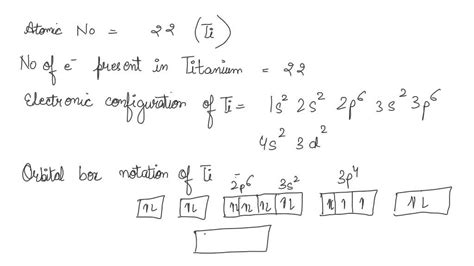 Atomic No = 22 (Ti)
No of e⁻ present in Titanium = 22
Electronic configuration of Ti = 1s² 2s² 2p⁶ 3s² 3p⁶
4s² 3d²
Orbital box notation of Ti
2p⁶ 3s² 3p⁴
↑↓ ↑↓ ↑↓ ↑↓ ↑↓ ↑↓ ↑↓ ↑ ↑ ↑↓